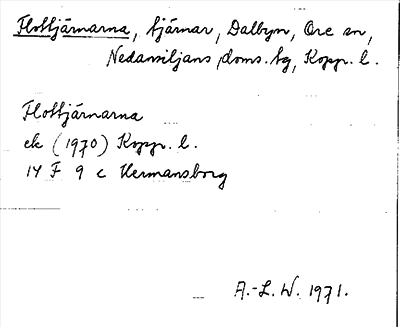 Flottjärnarna, tjärnar, Dalbyn, Ore sn,
Nedansiljans doms. tg, Kopp. l.
Flottjärnarna
ek (1970) Kopp. l.
14 F 9 c Hermansborg
A.-L. W. 1971.